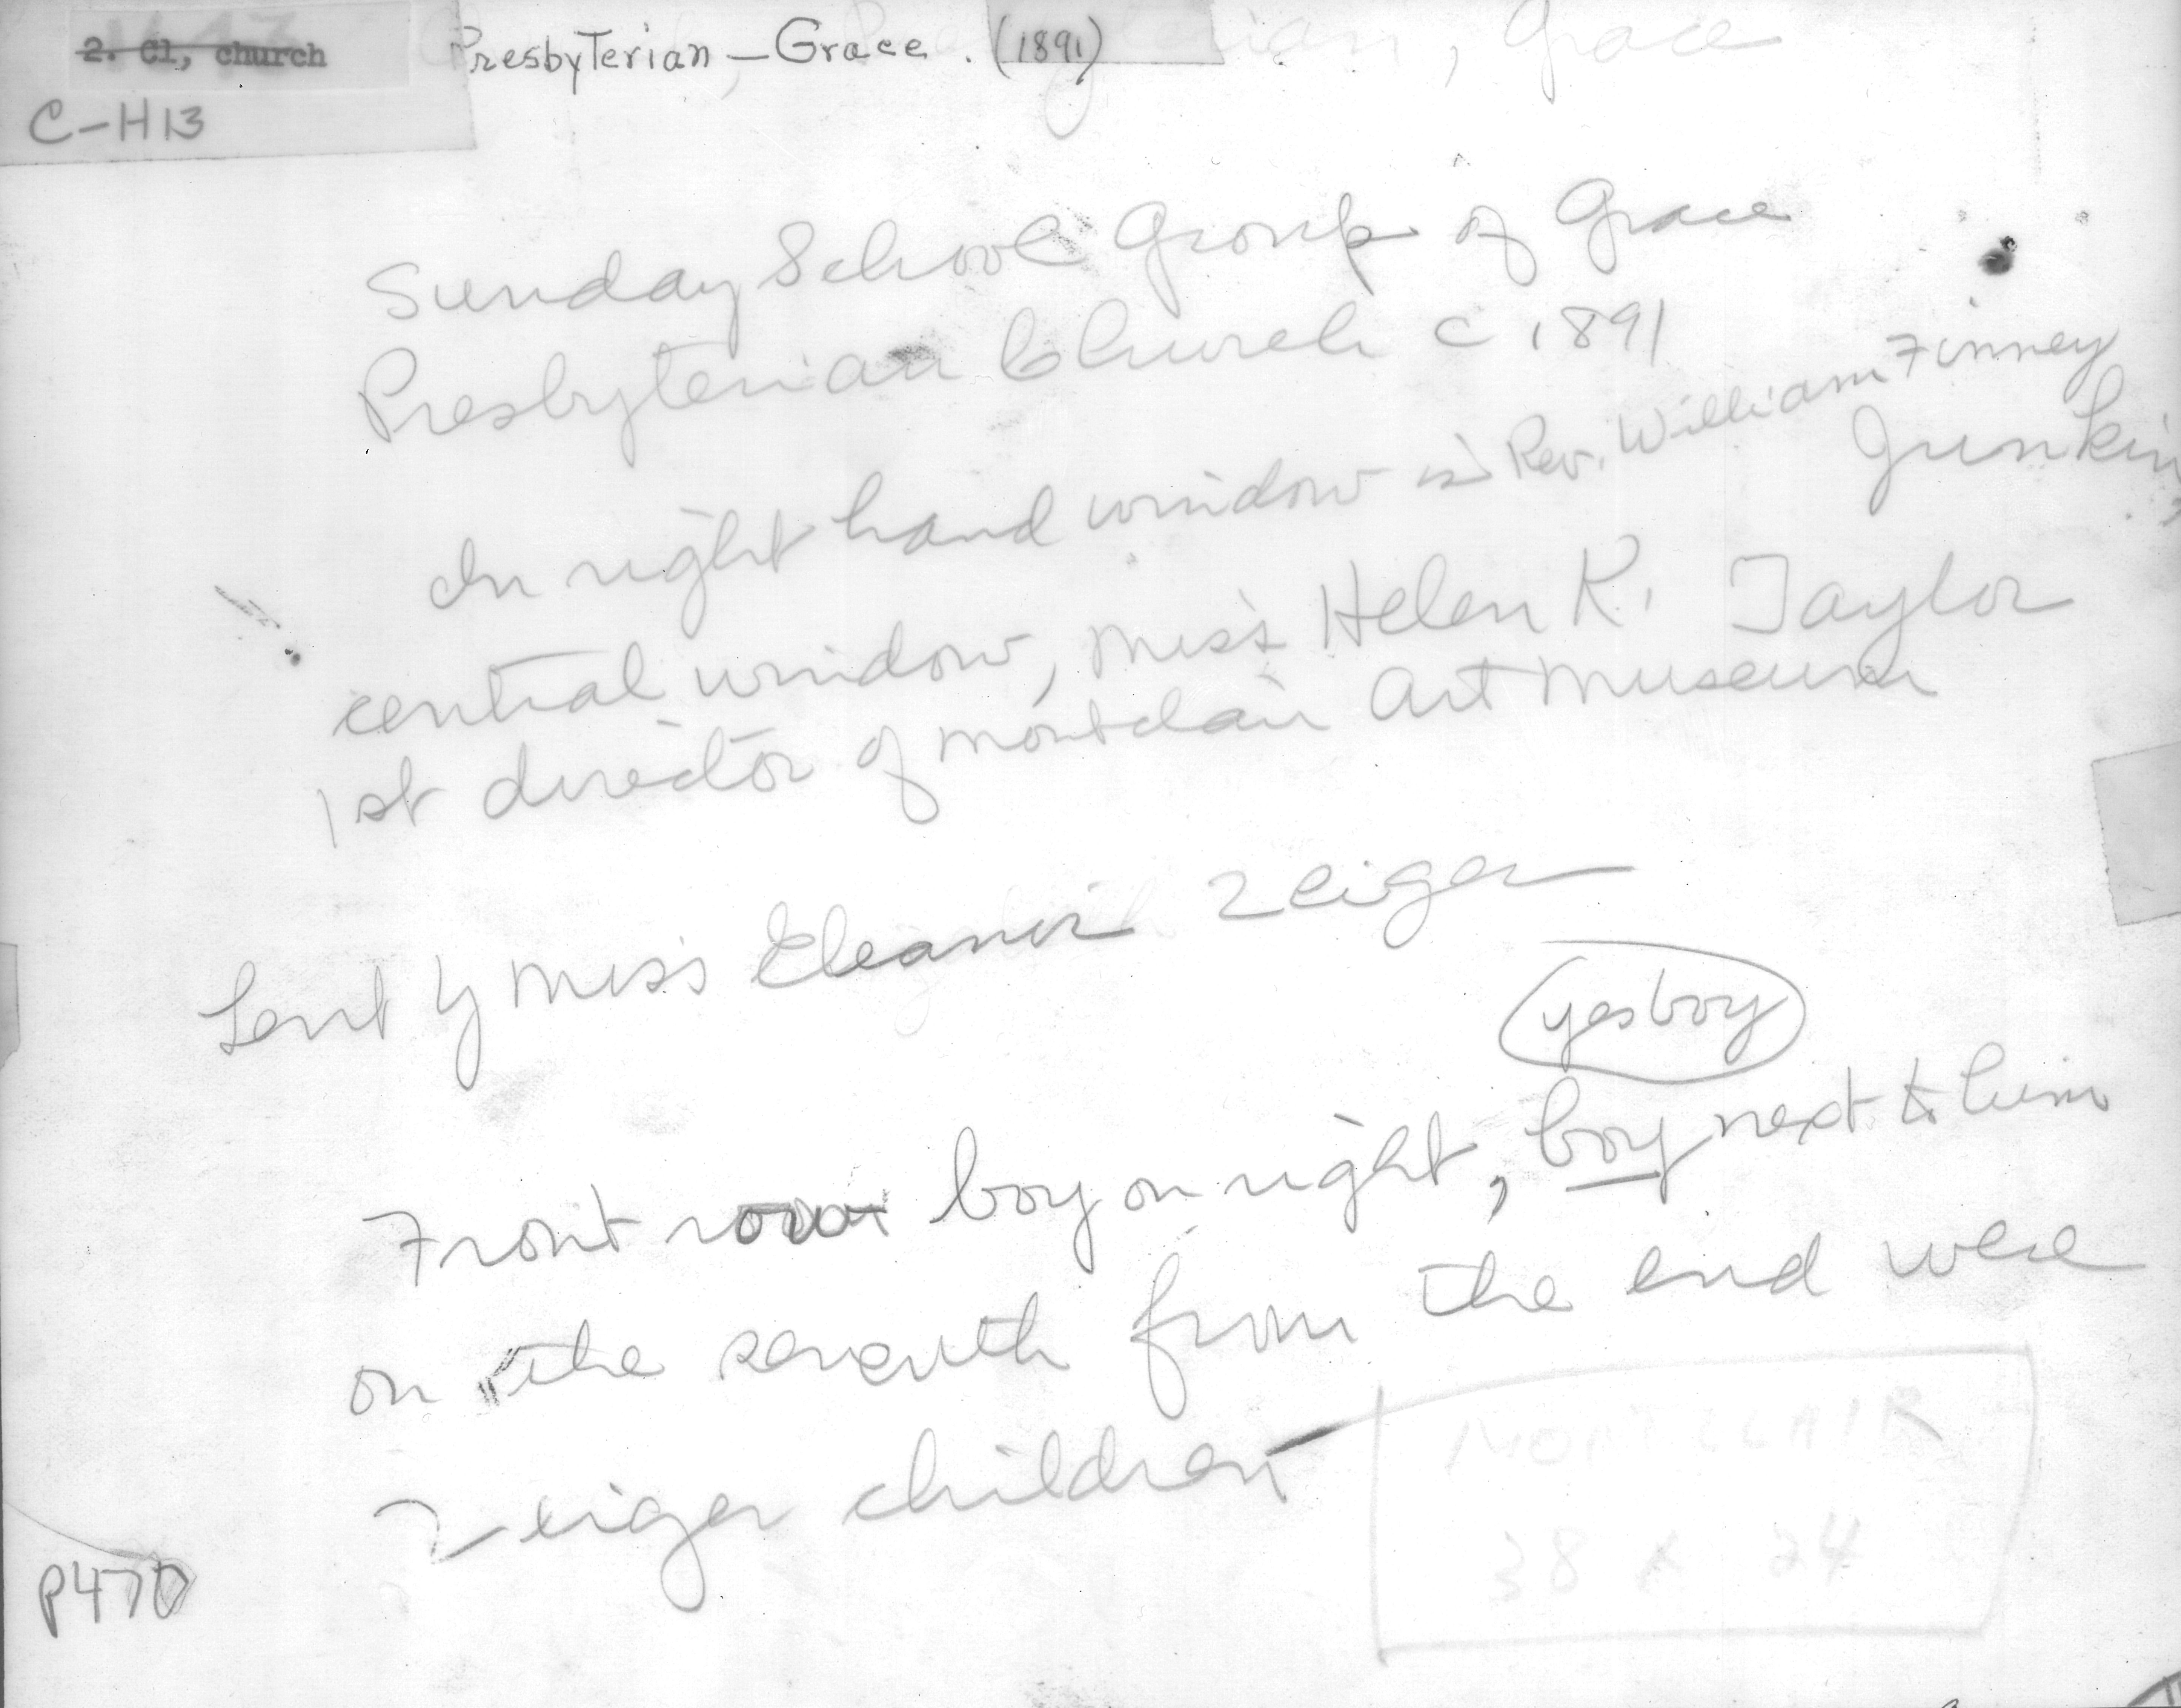 2. Cl, church Presbyterian - Grace. (1891)
, Grace
C-H13
Sunday School Group of Grace
Presbyterian Church c 1891
In right hand window is Rev. William Finney
Junkin
central window, Miss Helen K. Taylor
1st director of Montclair Art Museum
Lent by Miss Eleanor Zeiger
yes boy
Front row boy on right, boy next to him
on the seventh from the end were
Zeiger children
MONTCLAIR
38 x 24
P470